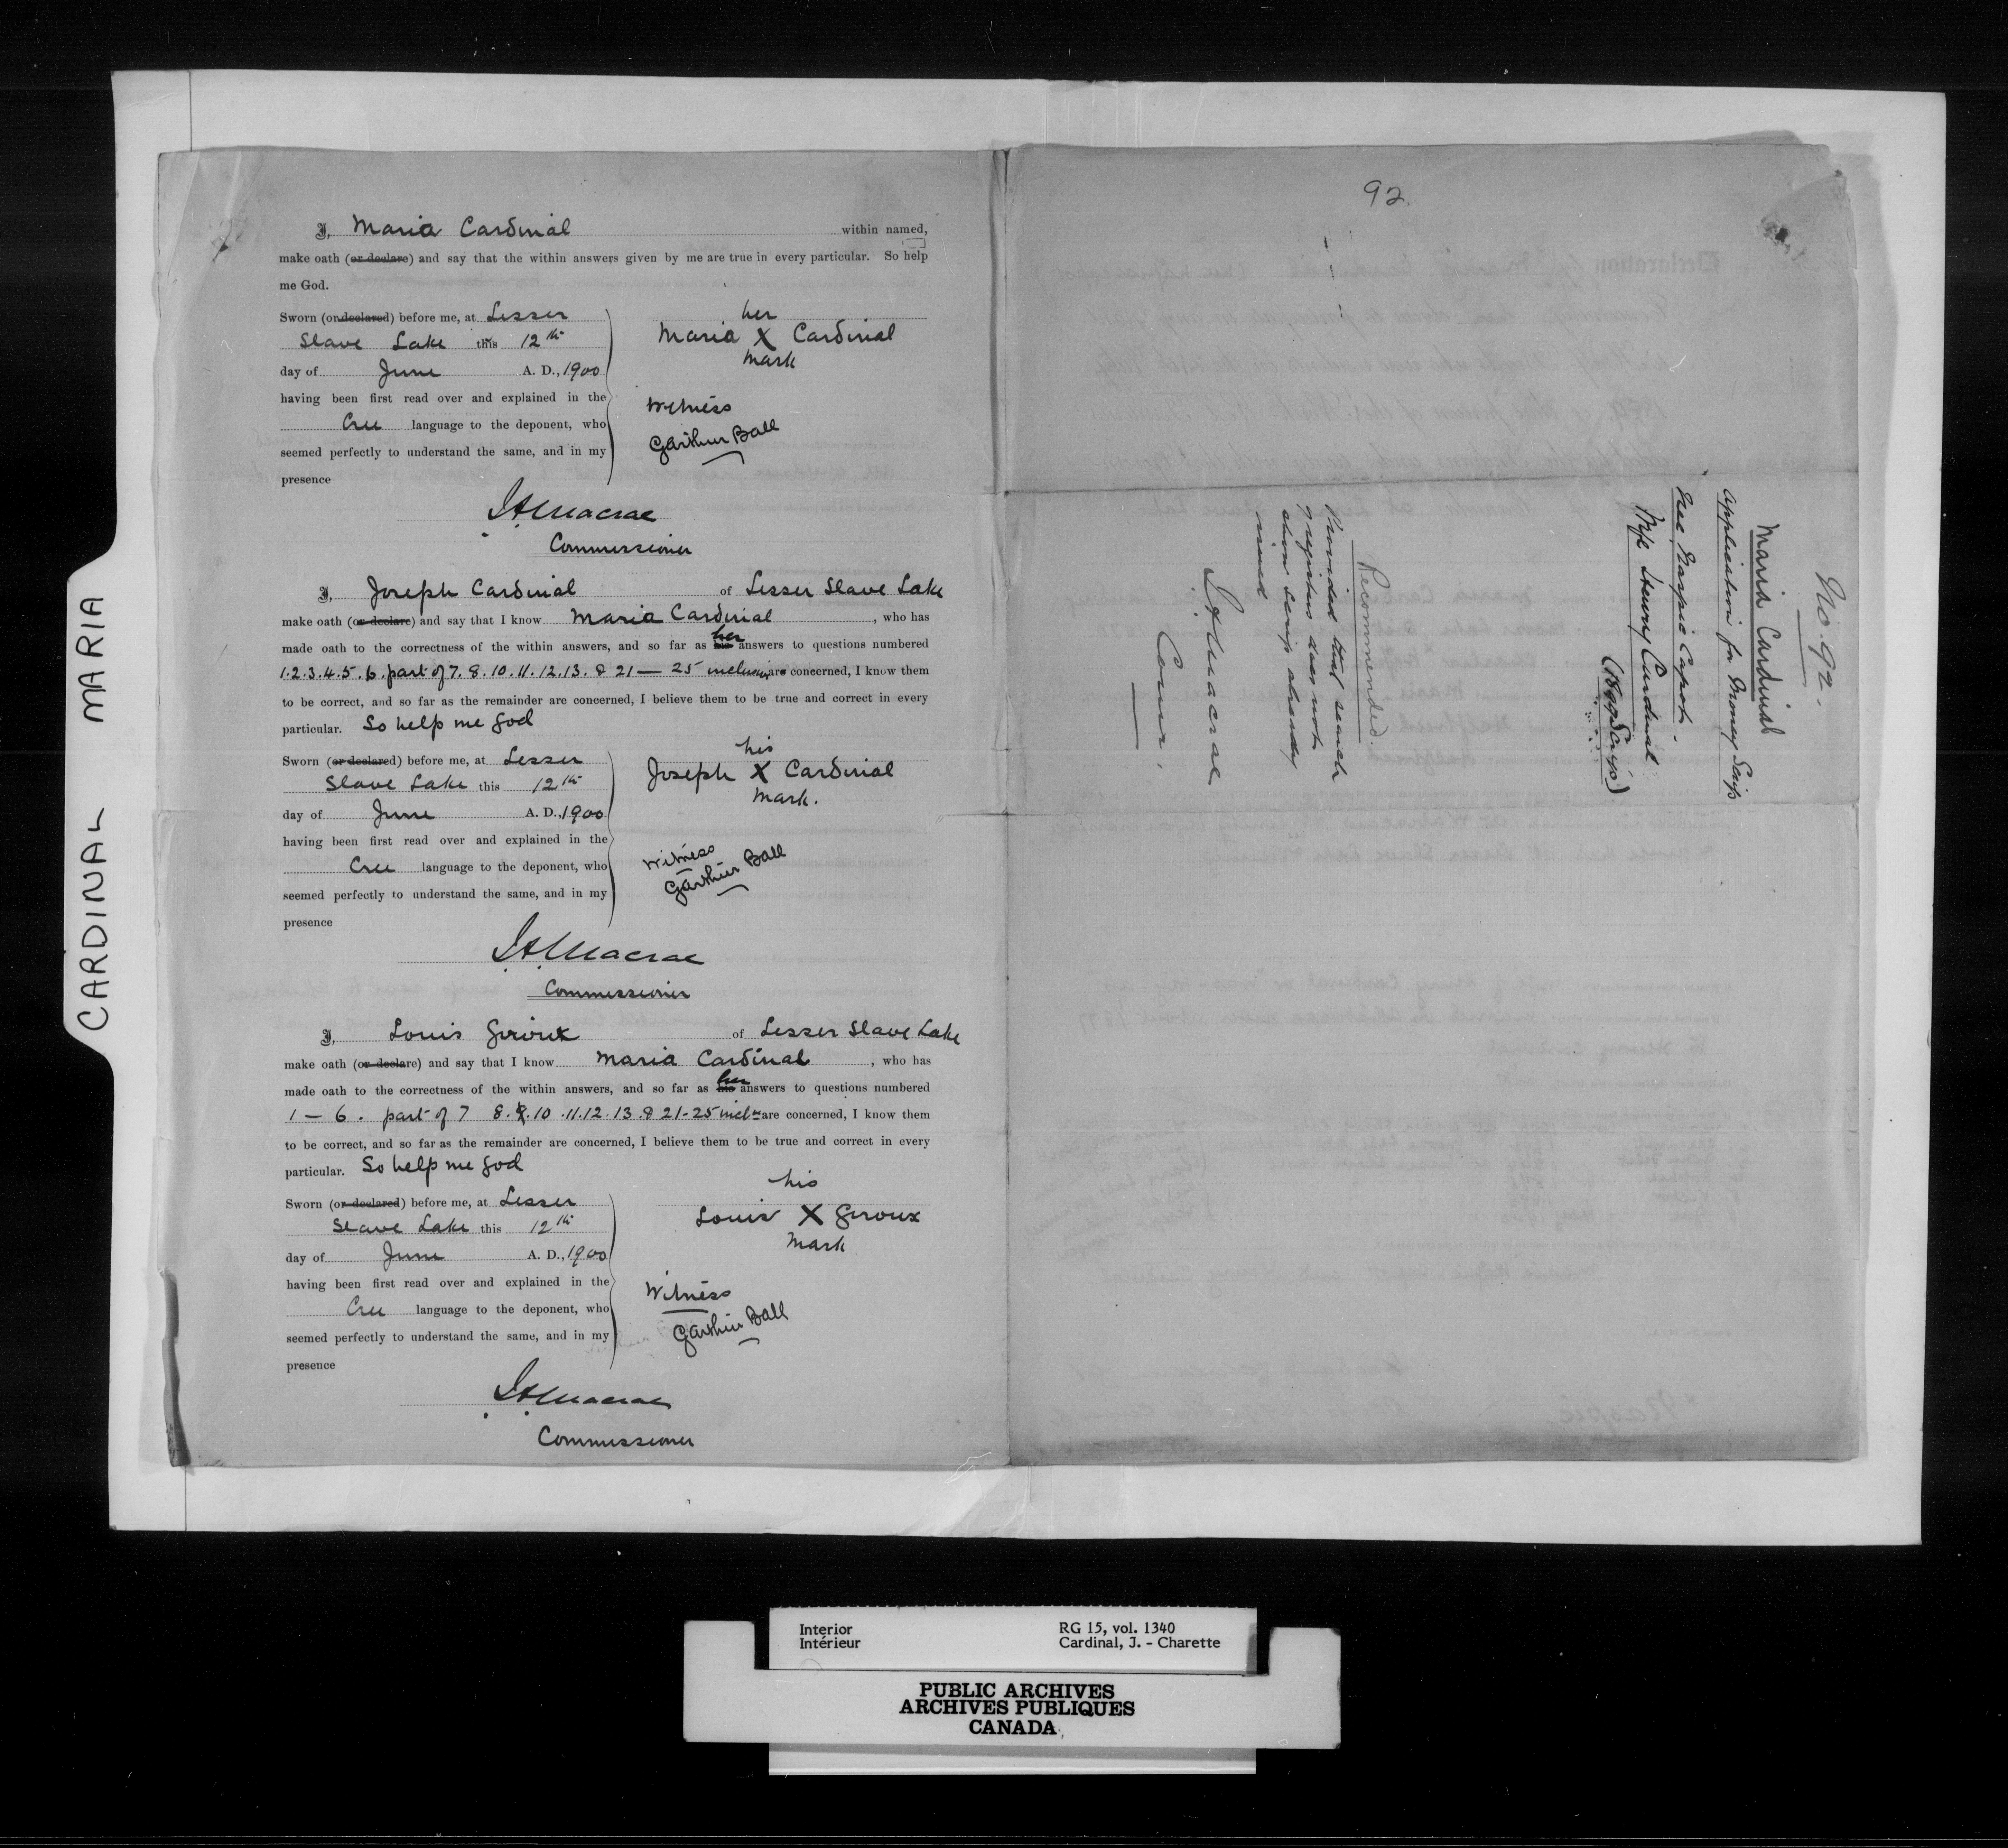 CARDINAL MARIA
I, Maria Cardinal within named,
make oath (or declare) and say that the within answers given by me are true in every particular. So help
me God.
Sworn (or declared) before me, at Lesser
Slave Lake this 12th
day of June A. D., 1900
having been first read over and explained in the
Cree language to the deponent, who
seemed perfectly to understand the same, and in my
presence
her
Maria X Cardinal
mark
Witness
Garthur Ball
JAMacrae
Commissioner
I, Joseph Cardinal of Lesser Slave Lake
make oath (or declare) and say that I know Maria Cardinal, who has
made oath to the correctness of the within answers, and so far as his her answers to questions numbered
1.2.3.4.5.6. part of 7.8.10.11.12.13. & 21 — 25 inclusive are concerned, I know them
to be correct, and so far as the remainder are concerned, I believe them to be true and correct in every
particular. So help me God
Sworn (or declared) before me, at Lesser
Slave Lake this 12th
day of June A. D., 1900
having been first read over and explained in the
Cree language to the deponent, who
seemed perfectly to understand the same, and in my
presence
his
Joseph X Cardinal
mark.
Witness
Garthur Ball
JAMacrae
Commissioner
I, Louis Giroux of Lesser Slave Lake
make oath (or declare) and say that I know Maria Cardinal, who has
made oath to the correctness of the within answers, and so far as his her answers to questions numbered
1 — 6. part of 7 8.9.10.11.12.13.& 21-25 incl're are concerned, I know them
to be correct, and so far as the remainder are concerned, I believe them to be true and correct in every
particular. So help me God
Sworn (or declared) before me, at Lesser
Slave Lake this 12th
day of June A. D., 1900
having been first read over and explained in the
Cree language to the deponent, who
seemed perfectly to understand the same, and in my
presence
his
Louis X Giroux
mark
Witness
Garthur Ball
JAMacrae
Commissioner
92.
No. 92.
Maria Cardinal
Application for Money Scrip
Nee Napio Capot.
Wife Henry Cardinal
(Scrip)
Recommended.
Provided that search
registers does not
show scrip already
issued
JAMacrae
Comr.
Interior
Intérieur
RG 15, vol. 1340
Cardinal, J. - Charette
PUBLIC ARCHIVES
ARCHIVES PUBLIQUES
CANADA